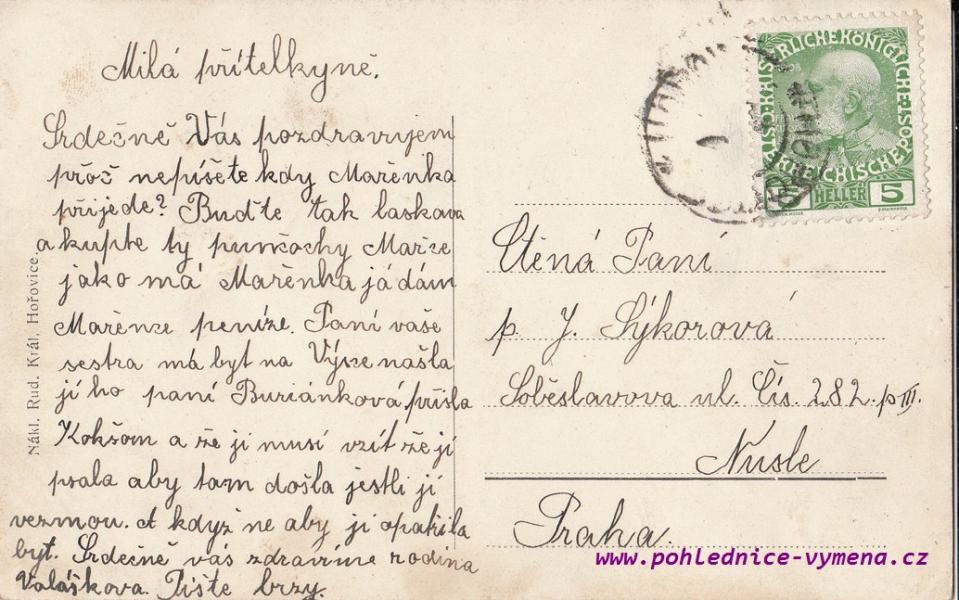 Milá přítelkyně.
Srdečně Vás pozdravujem
přoč nepíšete kdy Mařenka
přijede? Buďte tak laskava
a kupte ty punčochy Mařce
jako má Mařenka já dám
Mařence peníze. Paní vaše
sestra má byt na Výsce našla
jí ho paní Buriánková, přišla
a že ji musí vzít že jí
psala aby tam došla jestli ji
vezmou. A když ne aby ji opatřila
byt. Srdečně vás zdravíme rodina
Valáškova. Pište brzy.
Nákl. Rud. Král, Hořovice.
KAISERLICHE KÖNIGLICHE POST
HELLER 5
Ctěná Paní
p. J. Sýkorová
Soběslavova ul. Čís. 282. p III.
Nusle
Praha.
www.pohlednice-vymena.cz